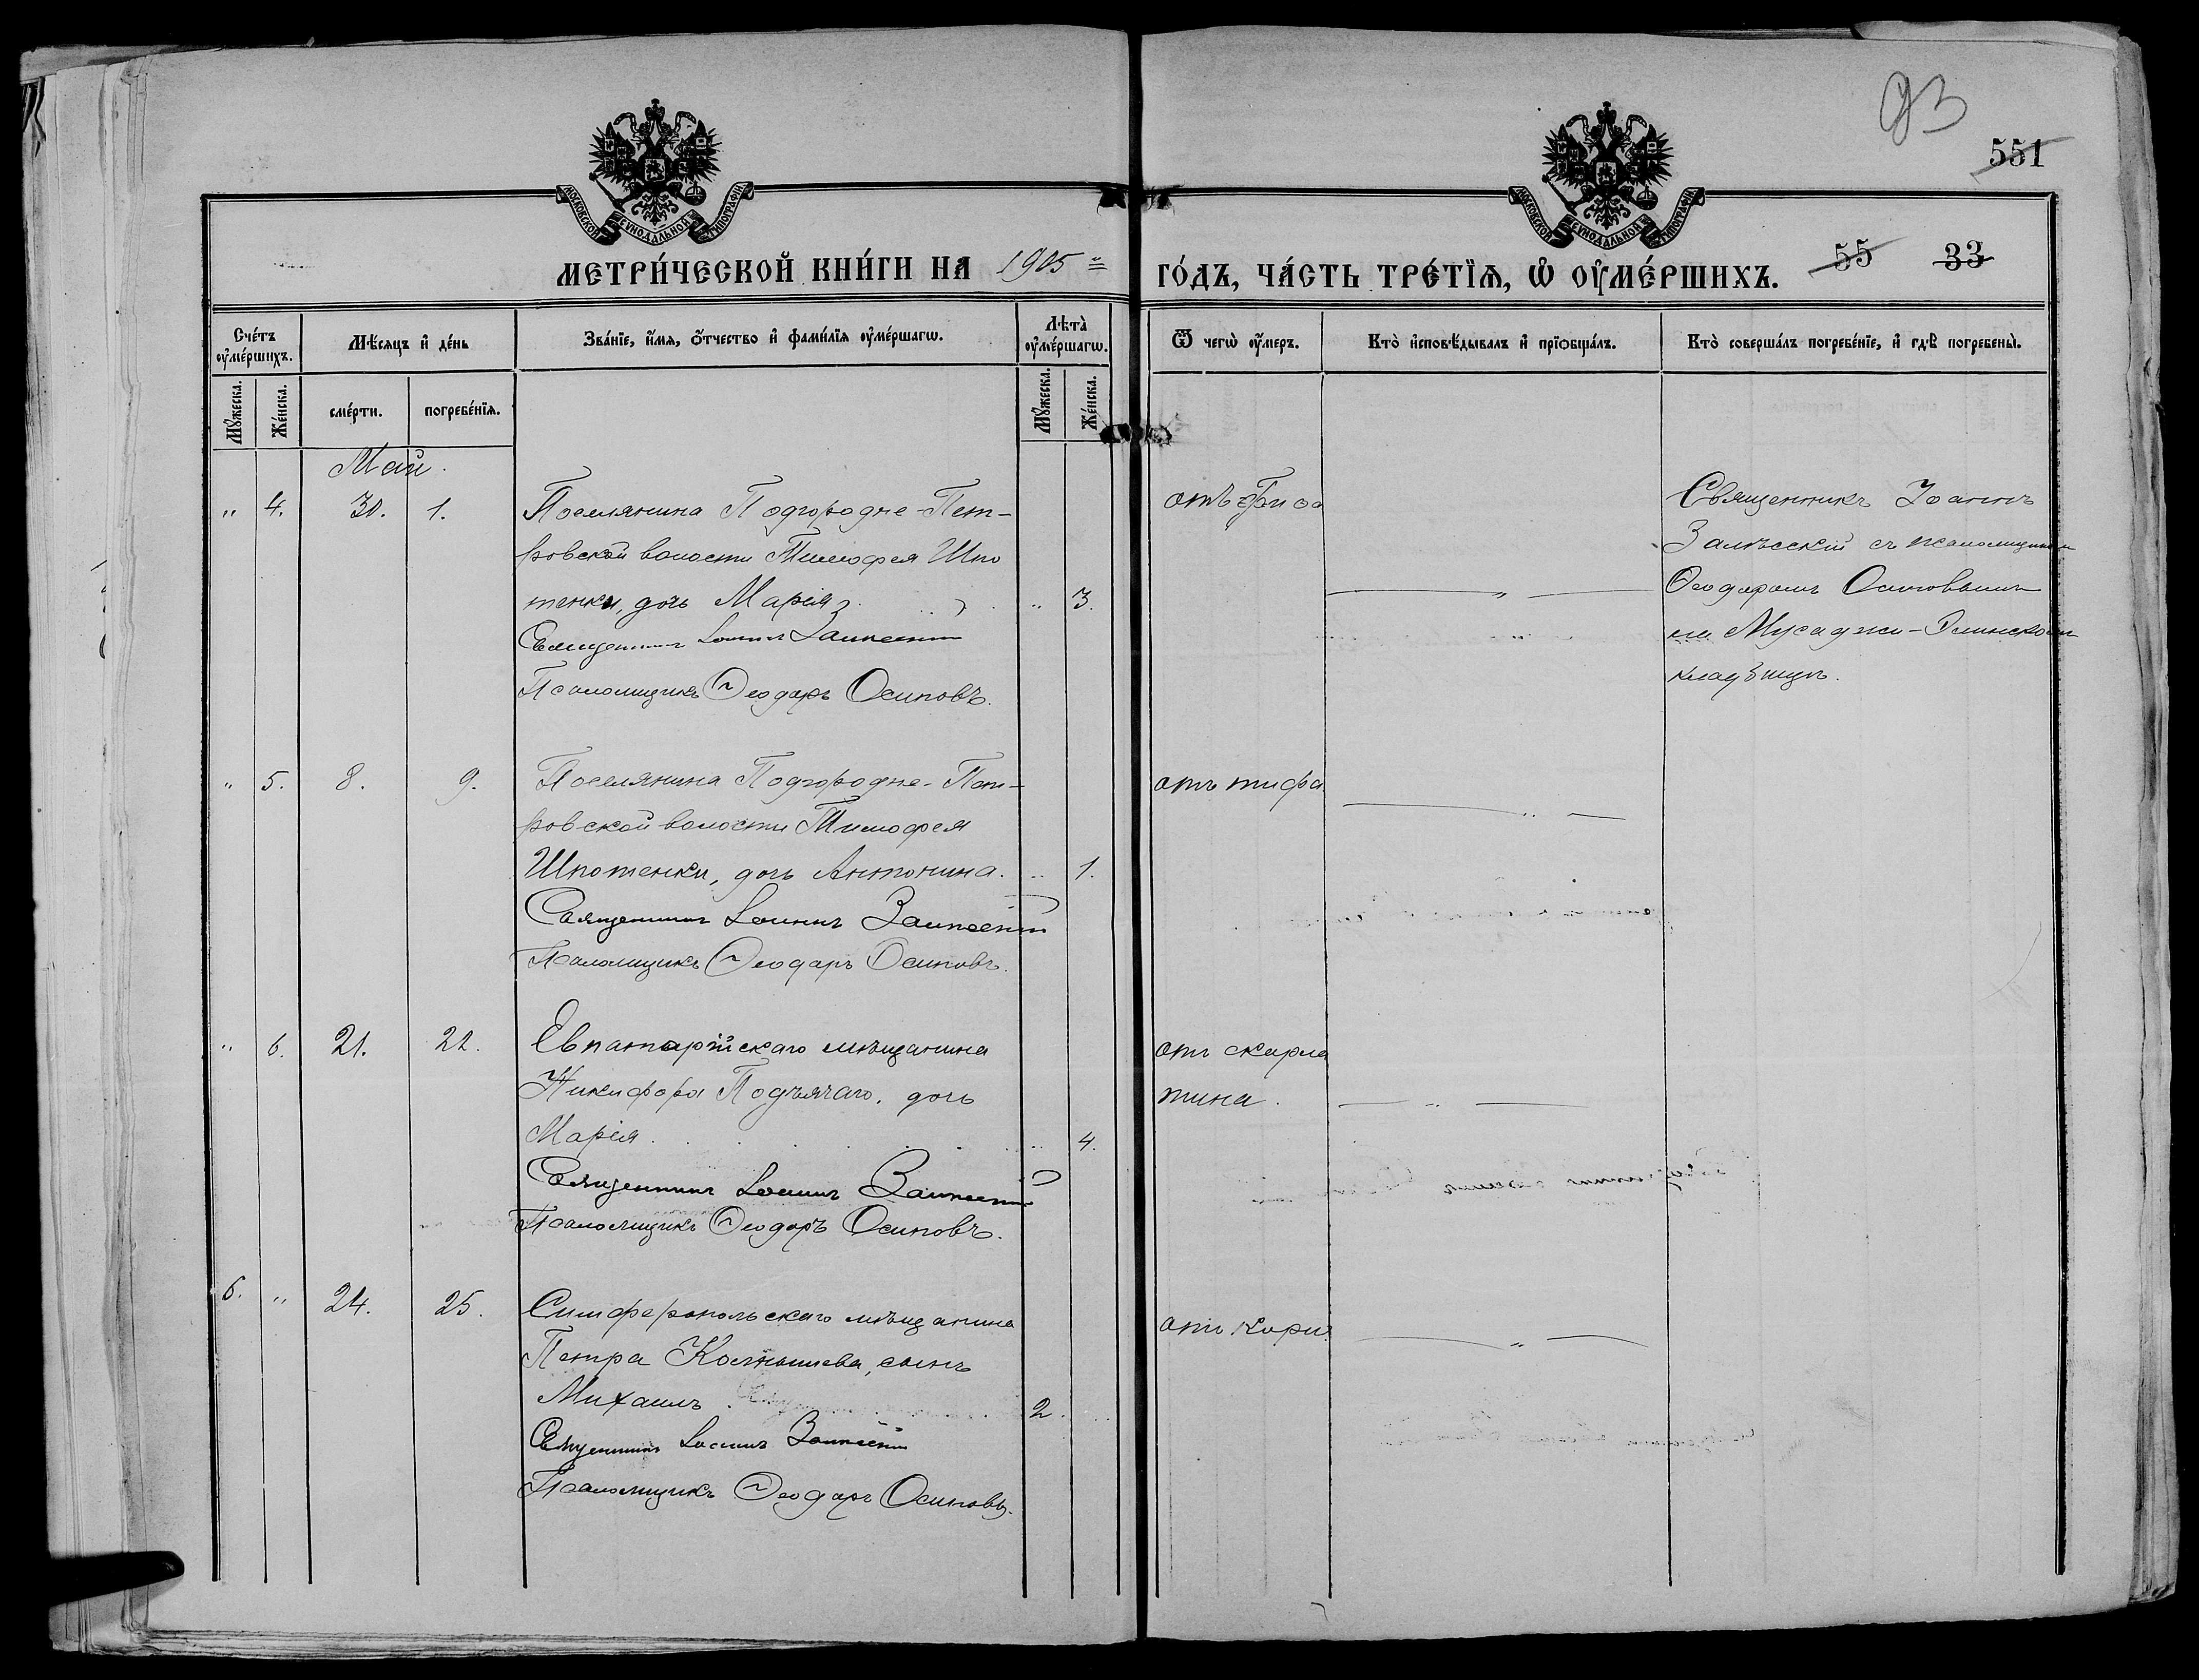 93
551
МОСКОВСКОЙ СУНОДАЛЬНОЙ ТИПОГРАФІИ
МОСКОВСКОЙ СУНОДАЛЬНОЙ ТИПОГРАФІИ
МЕТРИ́ЧЕСКОЙ КНИ́ГИ НА 1905 ГО́ДЪ, ЧА́СТЬ ТРЕ́ТЇѦ, Ѡ҆ ОУ҆МЕ́РШИХЪ. 55 33
Сче́тъ оу҆ме́ршихъ.
Мѣ́сяцъ и҆ де́нь
Зва́нїе, и҆́мѧ, ѻ҆́тчество и҆ фами́лїѧ оу҆ме́ршагѡ.
Лѣта̀ оу҆ме́ршагѡ.
Ѿ чегѡ̀ оу҆́меръ.
Кто̀ и҆сповѣ́дывалъ и҆ прїѡбща́лъ.
Кто̀ соверша́лъ погребе́нїе, и҆ гдѣ̀ погребены̀.
Мꙋ́жеска.
Же́нска.
сме́рти.
погребе́нїѧ.
Мꙋ́жеска.
Же́нска.
Май.
" 4. 30. 1. Поселянина Подгородне-Пет-
ровской волости Тимофея Шпо
тенки, дочь Марія " 3.
Священникъ Іоаннъ Залѣсскій
Псаломщикъ Ѳеодоръ Осиповъ.
отъ
Священникъ Іоаннъ
Залѣсскій съ псаломщикомъ
Ѳеодоромъ Осиповымъ
на Мусаджи-
кладбищѣ.
" 5. 8. 9. Поселянина Подгородне-Пет-
ровской волости Тимофея
Шпотенки, дочь Антонина. " 1.
Священникъ Іоаннъ Залѣсскій
Псаломщикъ Ѳеодоръ Осиповъ.
отъ тифа
" 6. 21. 22. Евпаторійскаго мѣщанина
Никифора Подъячаго, дочь
Марія. " 4.
Священникъ Іоаннъ Залѣсскій
Псаломщикъ Ѳеодоръ Осиповъ.
отъ скарла
тина.
6. " 24. 25. Симферопольскаго мѣщанина
Петра сынъ
Михаилъ 2. "
Священникъ Іоаннъ Залѣсскій
Псаломщикъ Ѳеодоръ Осиповъ.
отъ кори